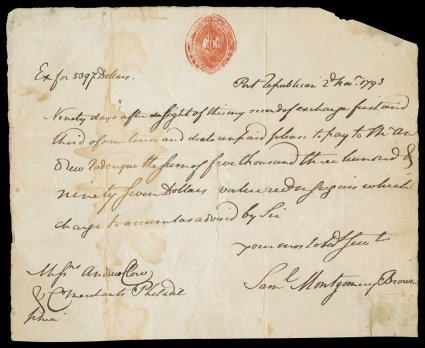 Ex for 5397 Dollars.
Port Republican 2d Nov.r 1793
Ninety days after sight of this my second of exchange first and
third of same tenor and date unpaid please to pay to Mr. An
drew the sum of five thousand three hundred &
ninety seven Dollars value red. in sugars which
charge to account as advised by Sir
your most obed Serv t
Sam.l Montgomery Brown
Messrs Andrew Clow
& Co merchants Philadel
phia